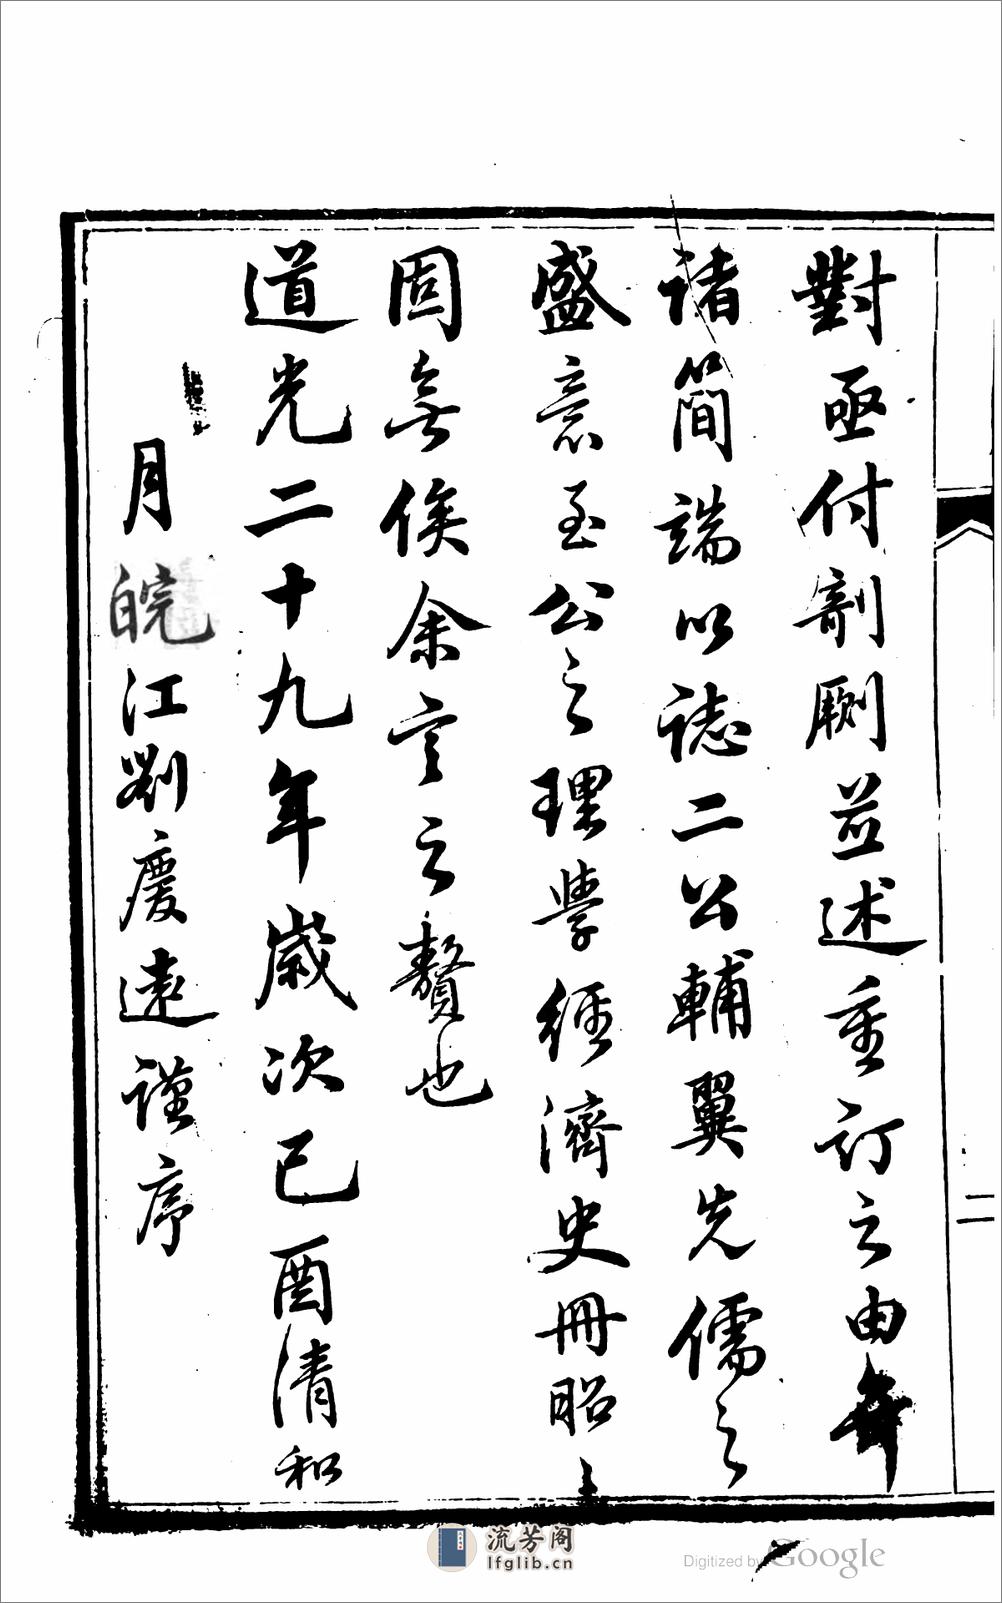 二
對亟付剞劂並述重訂之由弁
諸簡端以誌二公輔翼先儒之
盛意至公之理學經濟史冊昭〻
固無俟余言之贅也
道光二十九年歲次己酉清和
月皖江劉慶遠謹序
流芳阁
lfglib.cn
Digitized by Google